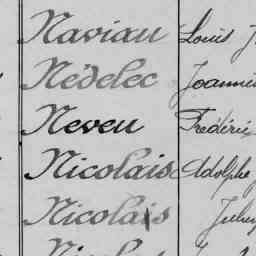 Navian Louis J
Nédelec Joanni
Neveu Frédéric
Nicolais Adolphe
Nicolais Juley